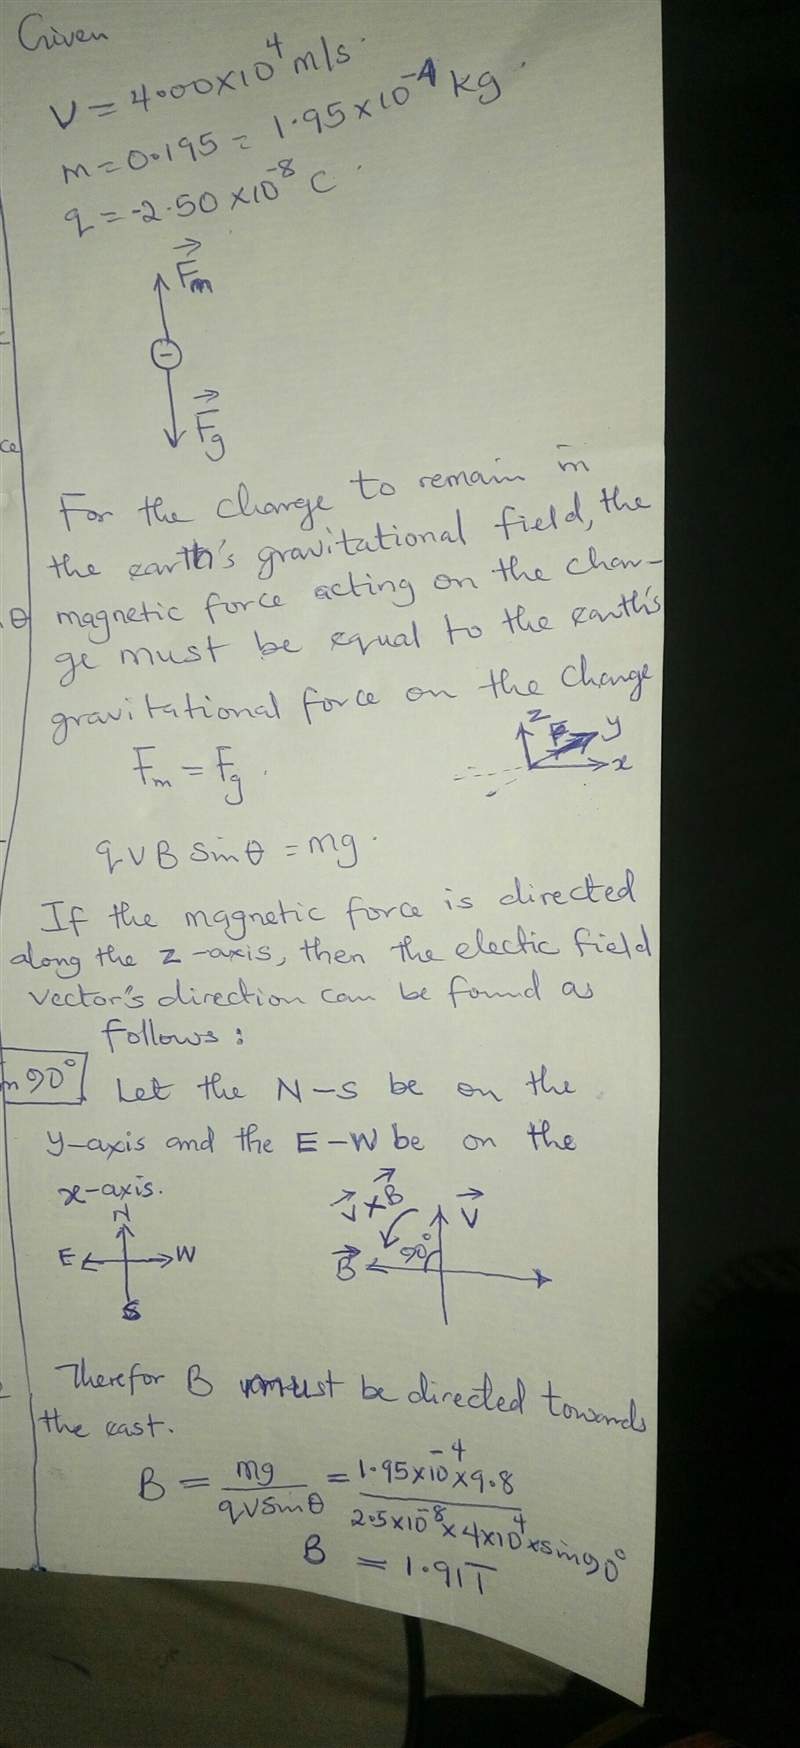 Given
V = 4.00×10⁴ m/s.
m = 0.195 = 1.95×10⁻⁴ kg.
q = -2.50×10⁻⁸ C.
F⃗m
−
F⃗g
For the charge to remain in
the earth's gravitational field, the
magnetic force acting on the char-
ge must be equal to the earth's
gravitational force on the charge
z
y
x
Fm = Fg.
qVB sinθ = mg.
If the magnetic force is directed
along the z-axis, then the electic field
vector's direction can be found as
follows:
n90°
Let the N-S be on the
y-axis and the E-W be on the
x-axis.
N
E W
S
V⃗×B⃗
V⃗
90°
B⃗
Therefor B must be directed towards
the east.
B = mg / qVsinθ = 1.95×10⁻⁴×9.8 / 2.5×10⁻⁸×4×10⁴×sin90°
B = 1.91T
ce
θ